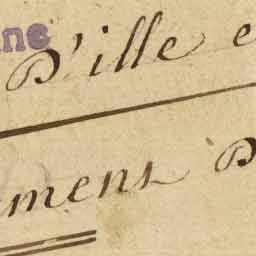 ne
D'ille e
mens D